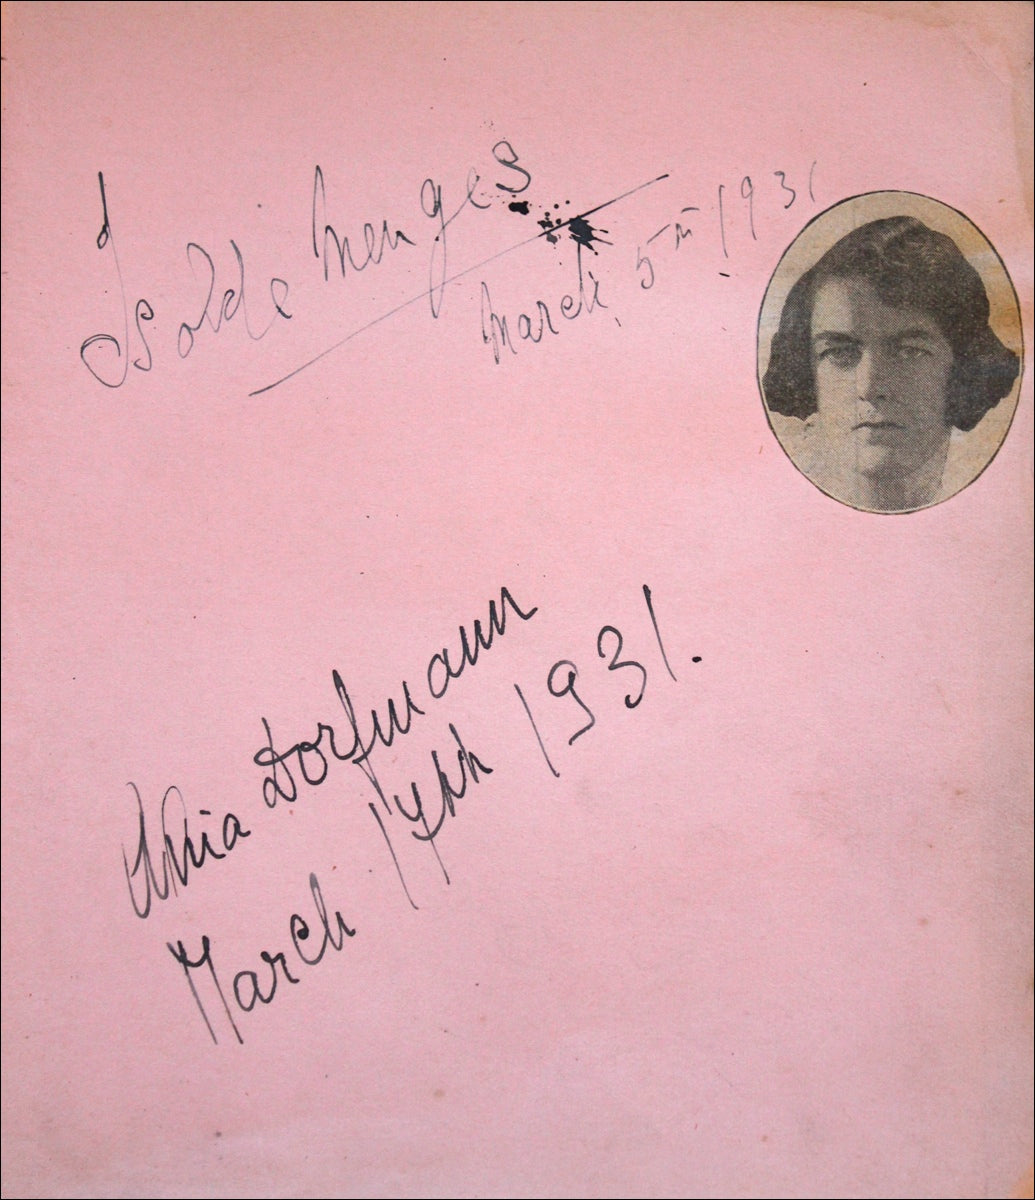 Isolde Menges
March 5th 1931
Ania Dorfmann
March 17th 1931.